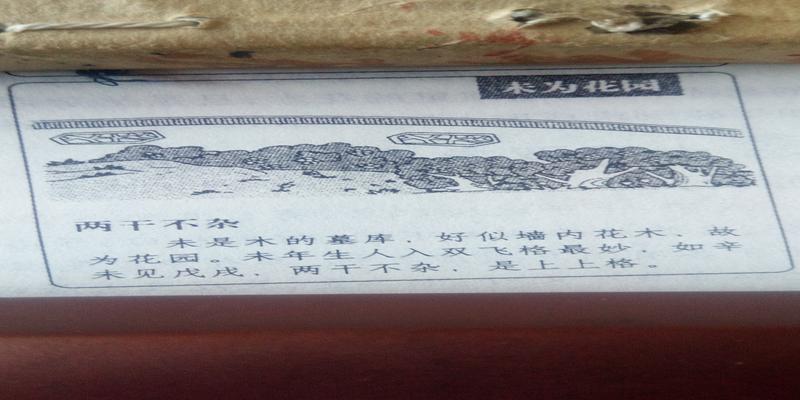 未为花园
两干不杂
未是木的墓库，好似墙内花木，故
为花园。未年生人入双飞格最妙，如辛
未见戊戌，两干不杂，是上上格。